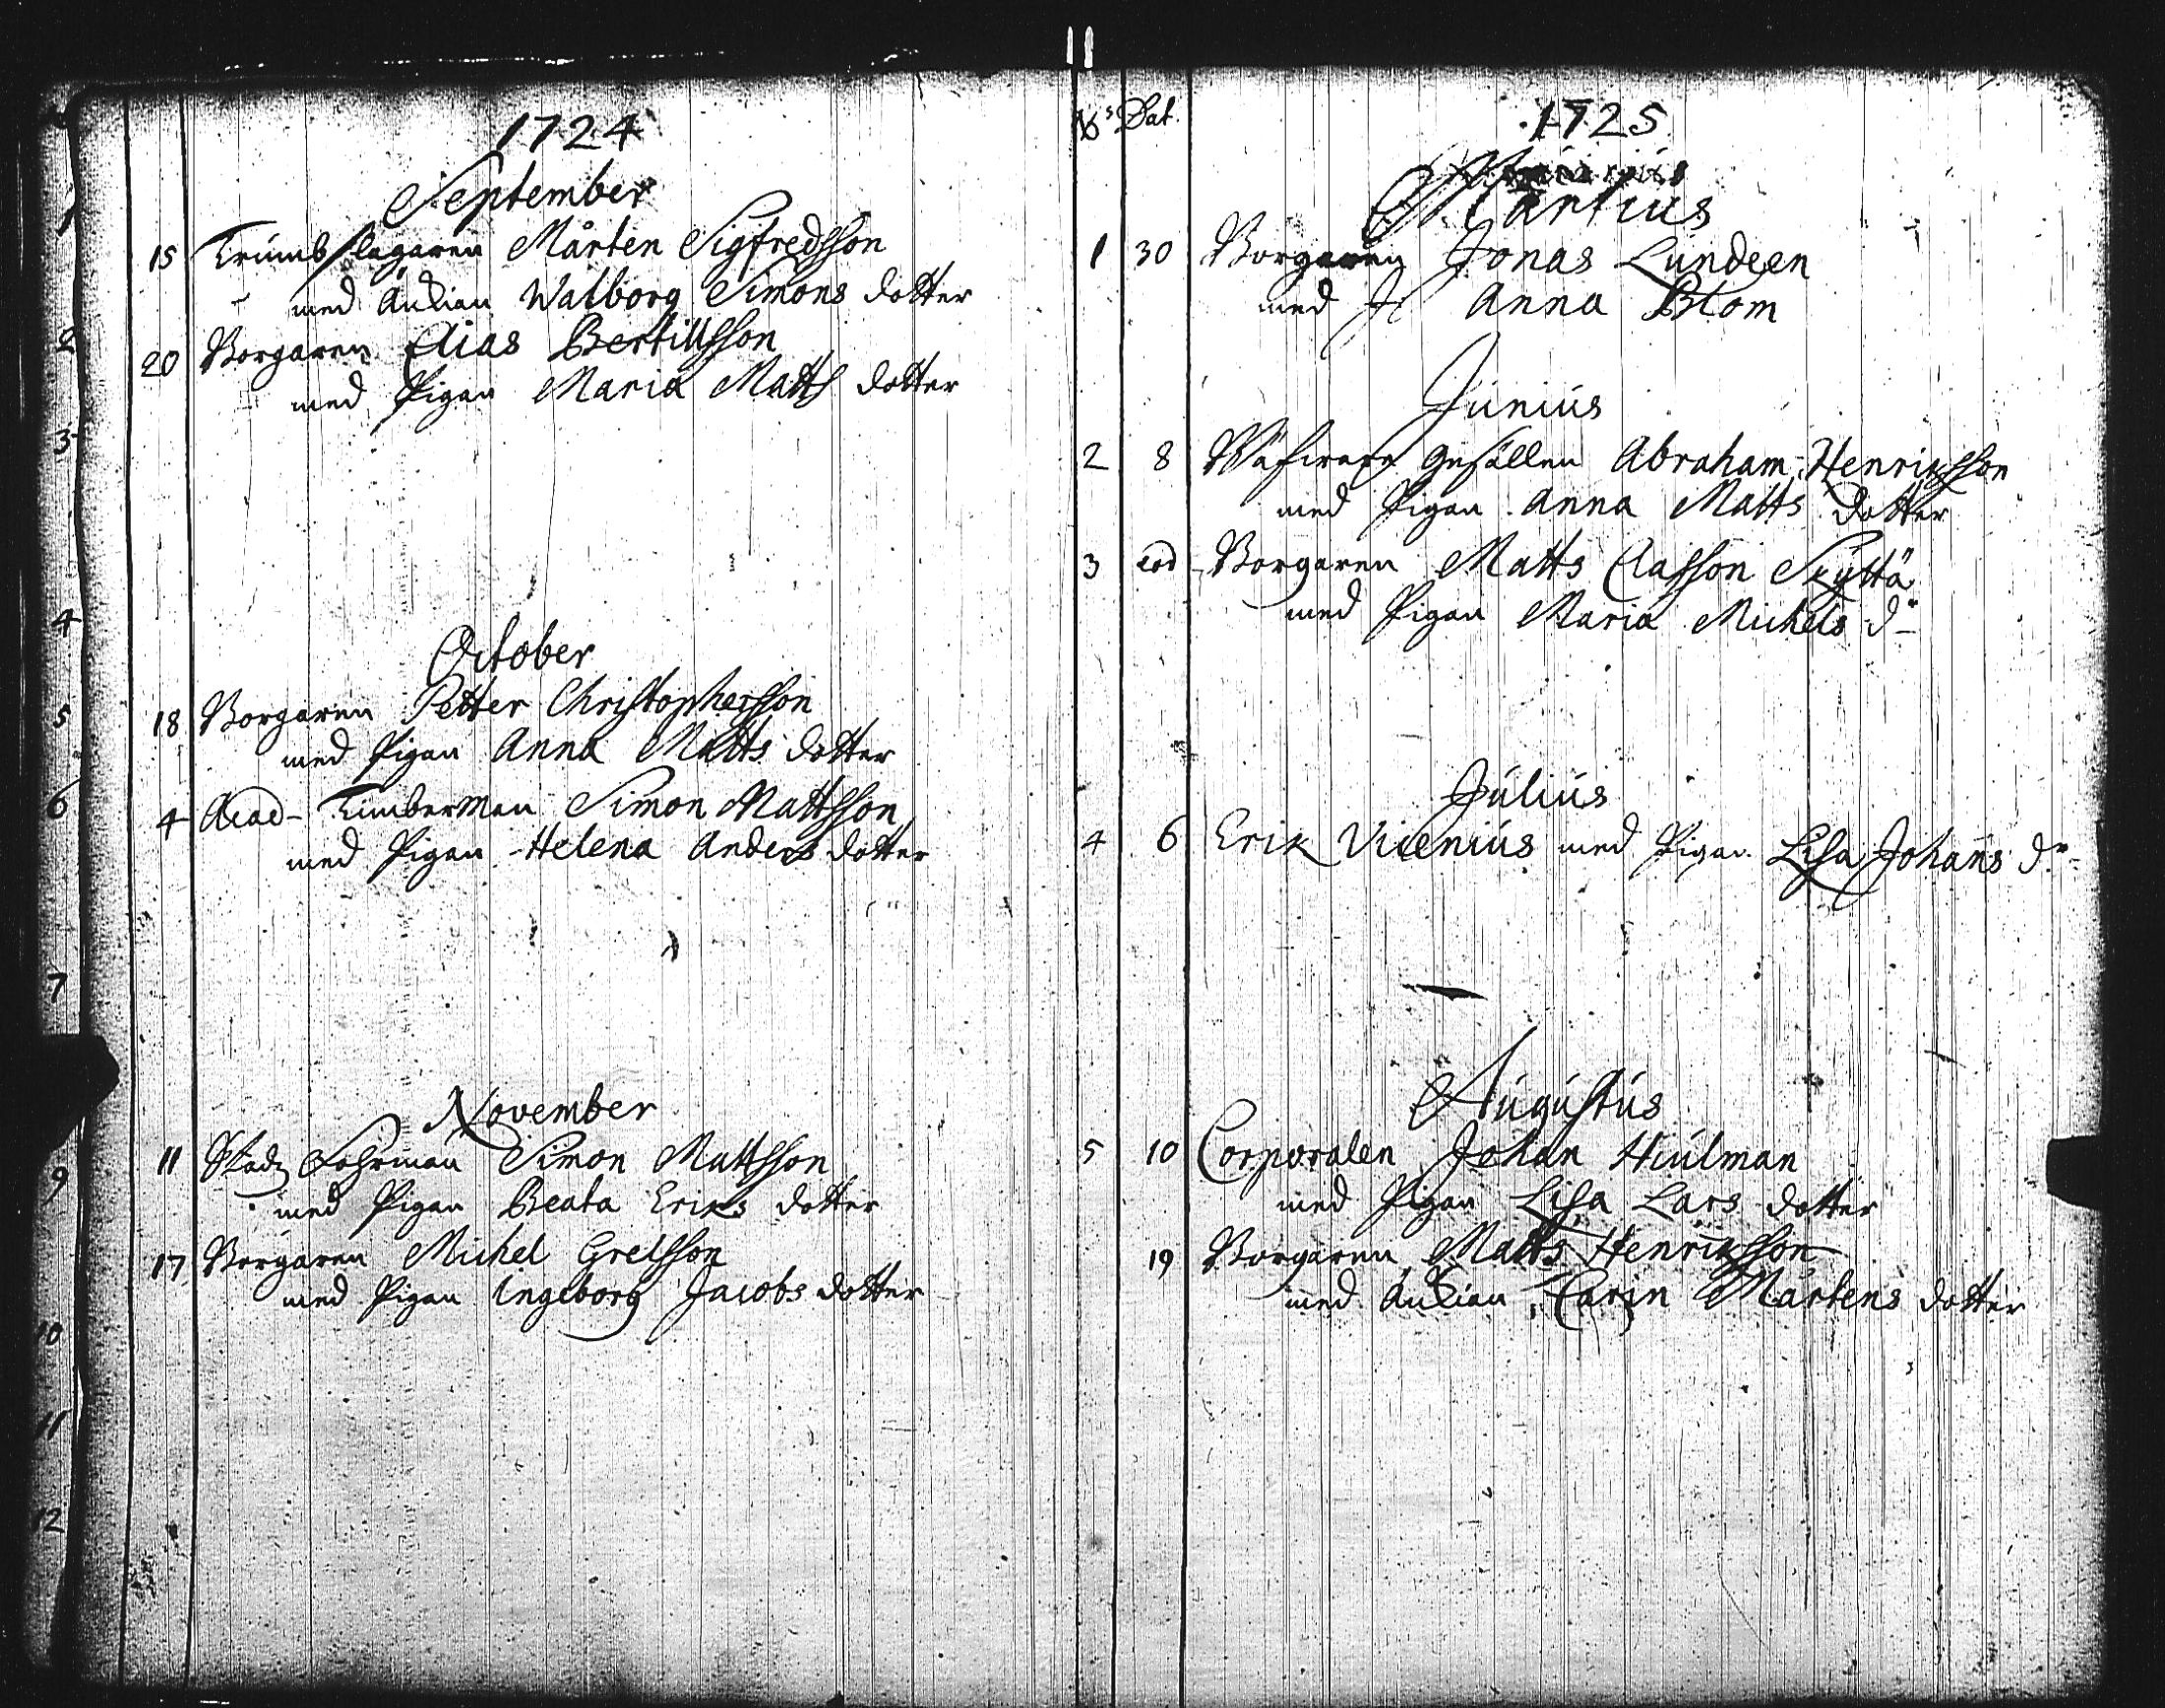 1724
September
15 Trumbslagaren Mårten Sigfredsson
med Änkian Walborg Simons dotter
20 Borgaren Elias Bertillsson
med Pigan Maria Matts dotter
October
18 Borgaren Petter Christophersson
med Pigan Anna Matts dotter
4 Acad- Timberman Simon Mattsson
med Pigan Helena Anders dotter
November
11 Stadz Fohrman Simon Mattsson
med Pigan Beata Eriks dotter
17 Borgaren Michel Grelsson
med Pigan Ingeborg Jacobs dotter
1
2
3
4
5
6
7
9
10
11
12
N:s Dat.
1725
Martius
1 30 Borgaren Jonas Lundeen
med J: Anna Blom
Junius
2 8 Gesällen Abraham Henriksson
med Pigan Anna Matts dotter
3 eod Borgaren Matts Classon Skyttä
med Pigan Maria Michels d-
Julius
4 6 Erik Vicenius med Pigan Lisa Johans dr
Augustus
5 10 Corporalen Johan Hiulman
med Pigan Lisa Lars dotter
19 Borgaren Matts Henriksson
med Änkian Carin Mårtens dotter